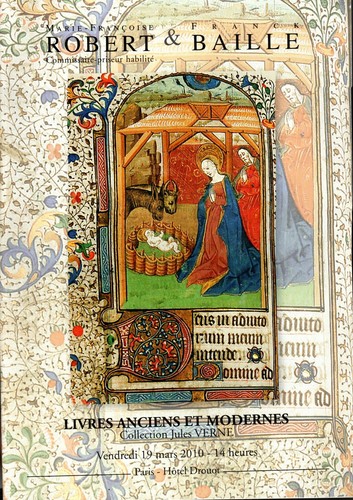 MARIE-FRANÇOISE FRANCK
ROBERT & BAILLE
Commissaire-priseur habilité
eus in adiuto
rium meum
intende.
Domine ad
LIVRES ANCIENS ET MODERNES
Collection Jules VERNE
Vendredi 19 mars 2010 - 14 heures
Paris - Hôtel Drouot